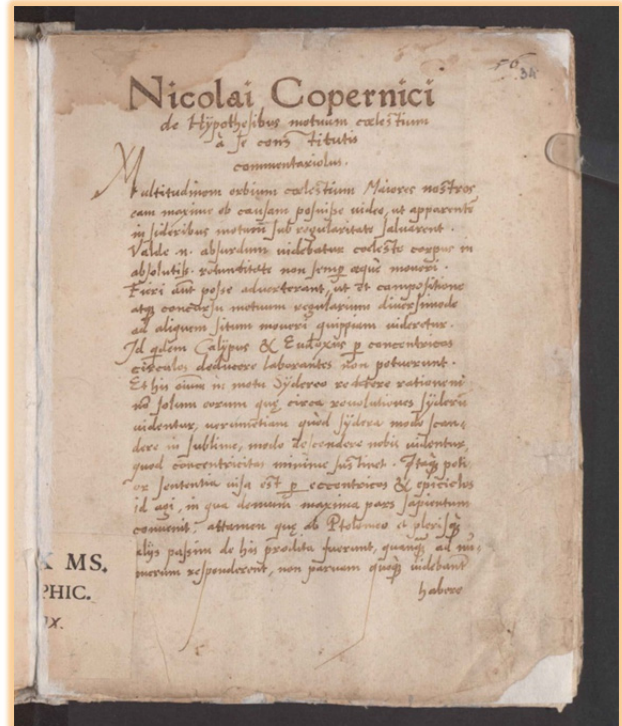 56
38
Nicolai Copernici
de Hypothesibus motuum cœlestium
à se constitutis
commentariolus.
Multitudinem orbium cœlestium Maiores nostros
eam maxime ob causam posuisse uideo, ut apparentē
in sideribus motum sub regularitate saluarent.
Valde .n. absurdum uidebatur cœleste corpus in
absolutiss. rotunditate non semp æque moueri.
Fieri aūt posse aduerterant, ut et compositione
atq concursu motuum regularium diuersimode
ad aliquem situm moueri quippiam uideretur.
Id qdem Calippus & Eudoxus p concentricos
circulos deducere laborantes non potuerunt.
Et his omium in motu sydereo reddere rationem
nō solum eorum quę circa reuolutiones syderū
uidentur, uerumetiam quòd sydera modo scan-
dere in sublime, modo descendere nobis uidentur,
quod concentricitas minime sustinet. Itaq poti-
or sententia uisa est p eccentricos & epiciclos
id agi, in qua demum maxima pars sapientum
conuenit, attamen quę ab Ptolemeo et plerisq
alijs passim de his prodita fuerunt, quanq ad nu-
merum responderent, non paruam quoq uidebant
habere
X MS.
PHIC.
IX.